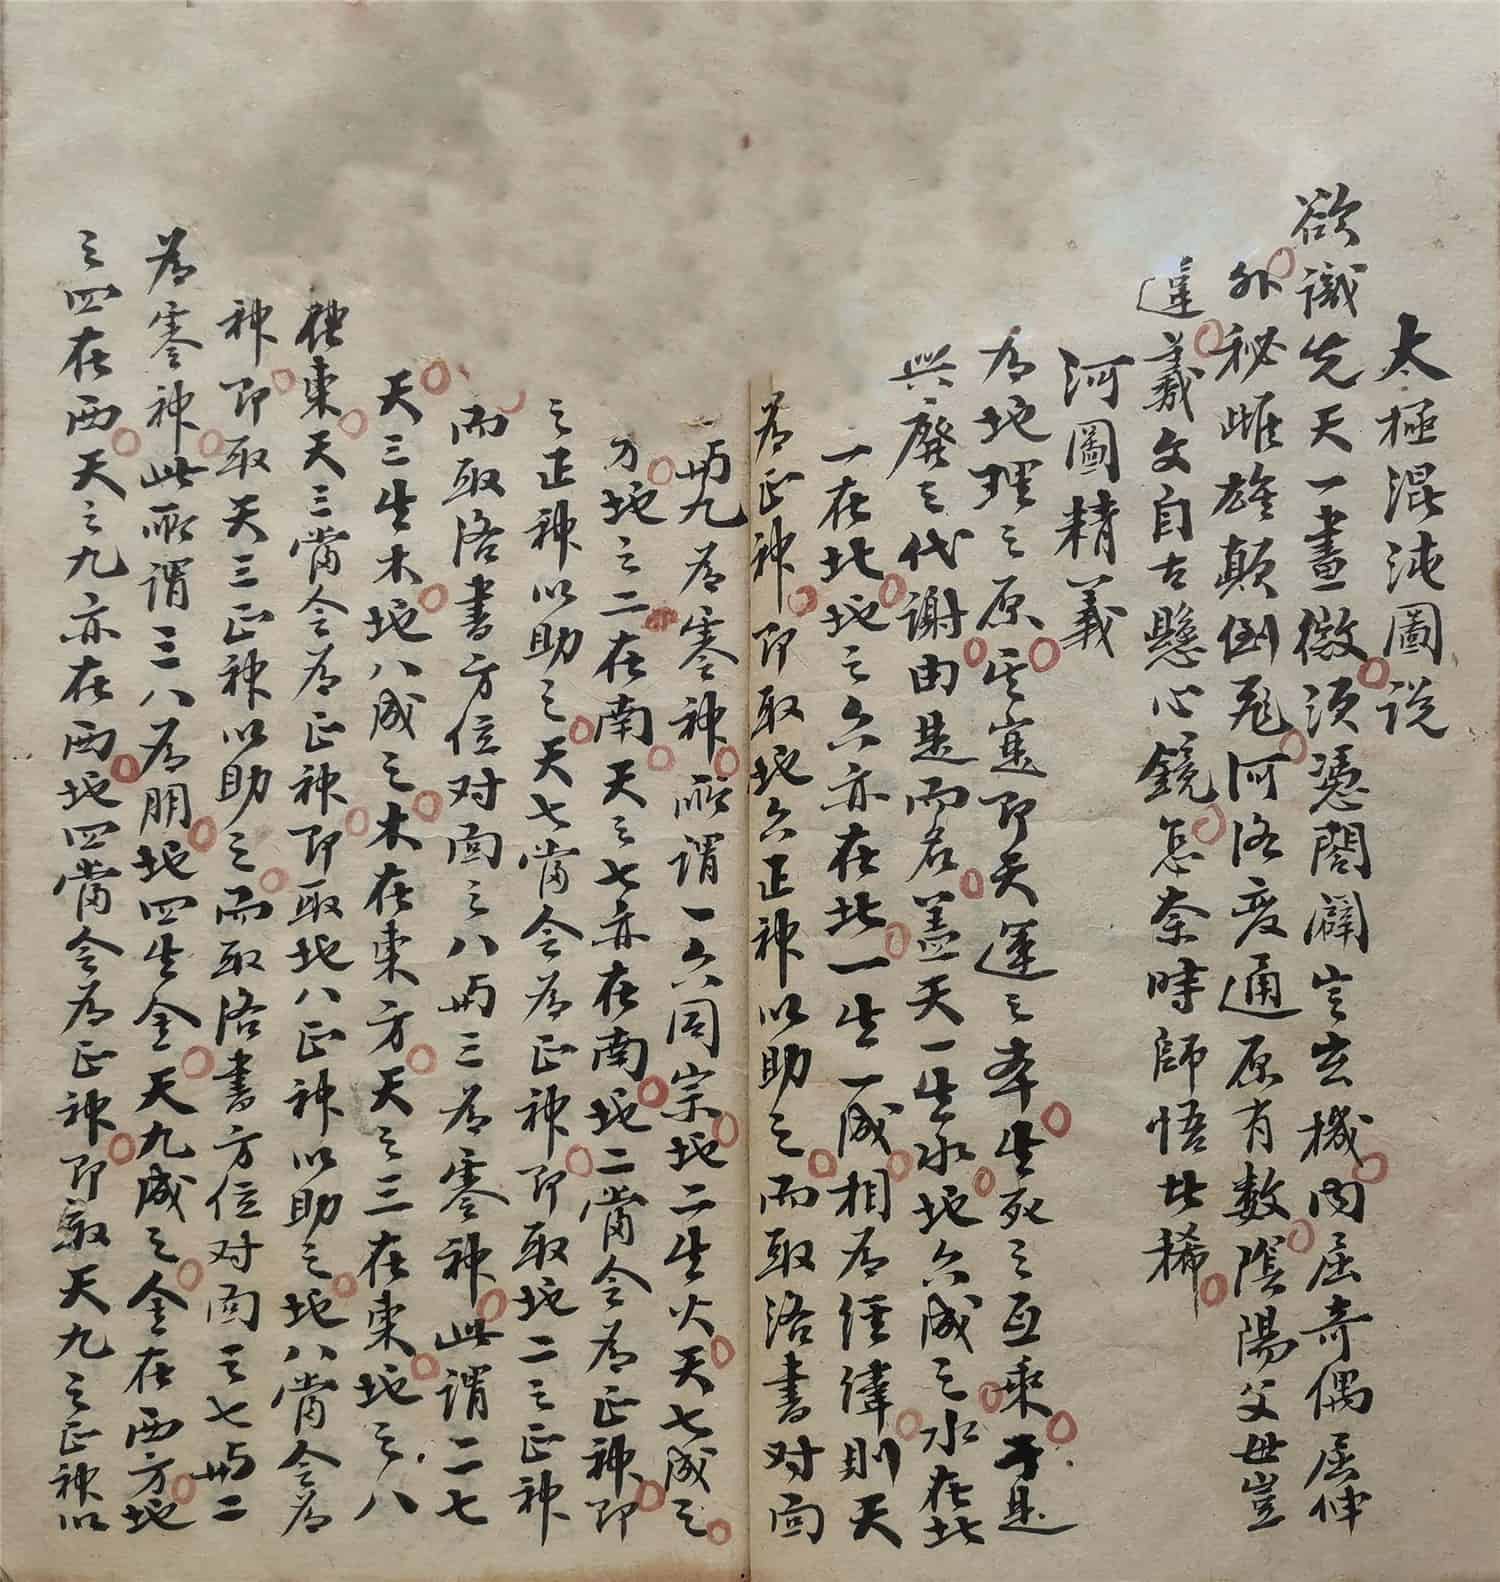 太極混沌圖説
欲識先天一畫微須憑闔闢言玄機內屈奇偶屈伸
外秘雌雄顛倒飛河洛變通原有数陰陽父母豈
違羲文自古懸心鏡怎奈時師悟甚稀
河圖精義
为地理之原寔即天運之本生死之互乘于是
興廢之代謝由是而名盖天一生水地六成之水在北
一在北地之六亦在北一生一成相为經緯則天
为正神即取地六正神以助之而取洛書对面
㘯九为零神所謂一六同宗地二生火天七成之
方地之二在南天之七亦在南地二當令为正神即
之正神以助之天七當令为正神即取地二之正神
而取洛書方位对面之八㘯三为零神此謂二七
天三生木地八成之木在東方天之三在東地之八
在東天三當令为正神即取地八正神以助之地八當令为
神即取天三正神以助之而取洛書方位对面之七㘯二
为零神此所謂三八为朋地四生金天九成之金在西方地
之四在西天之九亦在西地四當令为正神即取天九之正神以